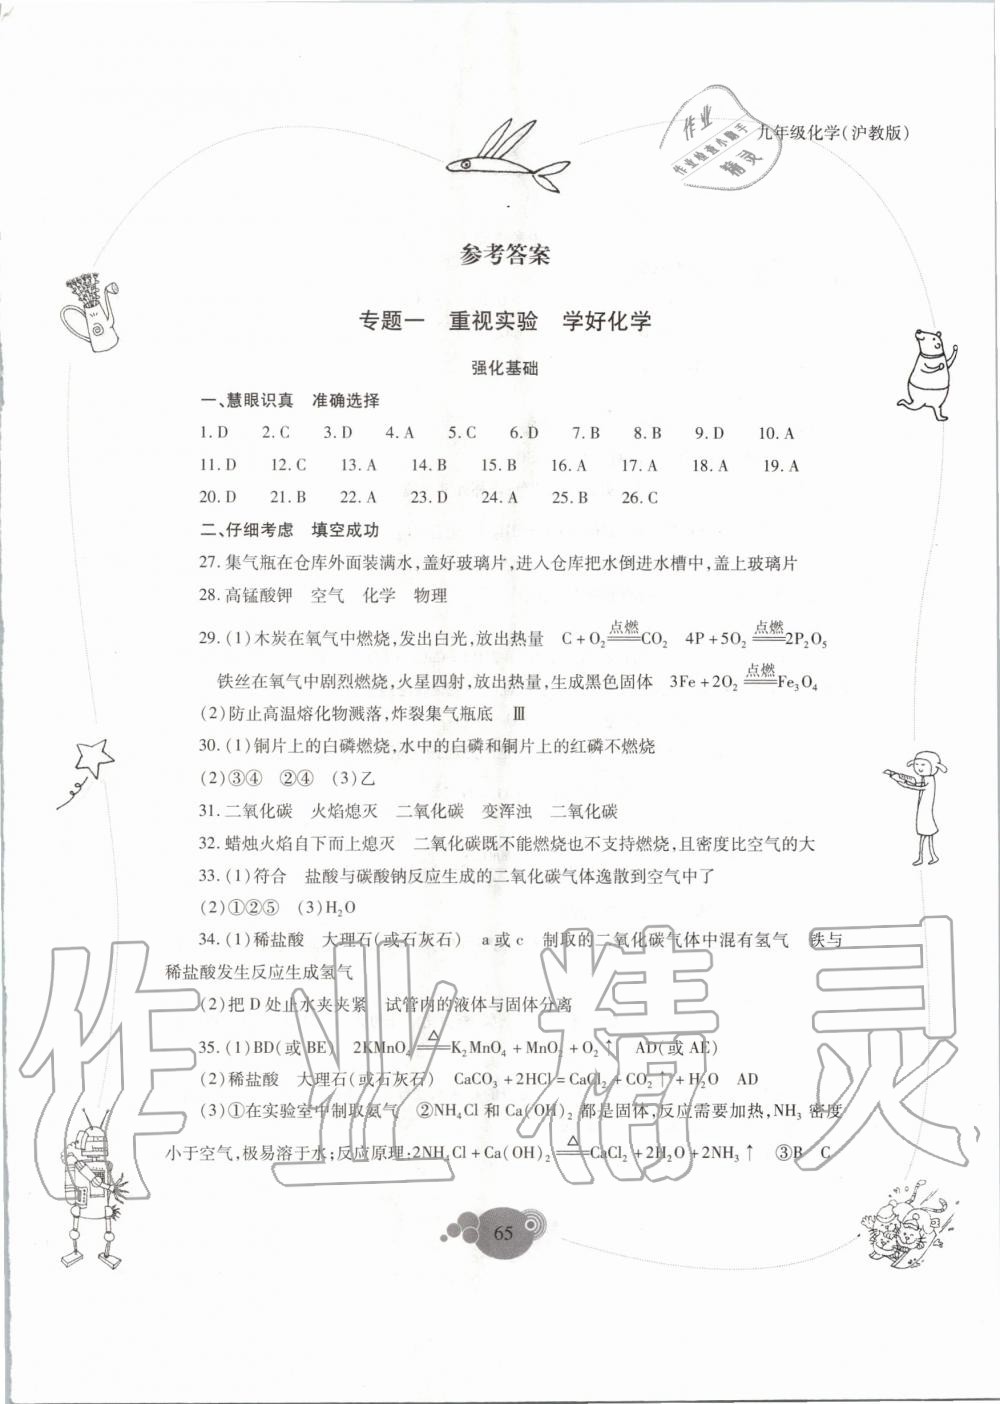 九年级化学(沪教版)
作业
作业检查小助手
精灵
参考答案
专题一 重视实验 学好化学
强化基础
一、慧眼识真 准确选择
1. D 2. C 3. D 4. A 5. C 6. D 7. B 8. B 9. D 10. A
11. D 12. C 13. A 14. B 15. B 16. A 17. A 18. A 19. A
20. D 21. B 22. A 23. D 24. A 25. B 26. C
二、仔细考虑 填空成功
27. 集气瓶在仓库外面装满水,盖好玻璃片,进入仓库把水倒进水槽中,盖上玻璃片
28. 高锰酸钾 空气 化学 物理
29. (1)木炭在氧气中燃烧,发出白光,放出热量 C+O₂ =点燃= CO₂ 4P+5O₂ =点燃= 2P₂O₅
铁丝在氧气中剧烈燃烧,火星四射,放出热量,生成黑色固体 3Fe+2O₂ =点燃= Fe₃O₄
(2)防止高温熔化物溅落,炸裂集气瓶底 Ⅲ
30. (1)铜片上的白磷燃烧,水中的白磷和铜片上的红磷不燃烧
(2)③④ ②④ (3)乙
31. 二氧化碳 火焰熄灭 二氧化碳 变浑浊 二氧化碳
32. 蜡烛火焰自下而上熄灭 二氧化碳既不能燃烧也不支持燃烧,且密度比空气的大
33. (1)符合 盐酸与碳酸钠反应生成的二氧化碳气体逸散到空气中了
(2)①②⑤ (3)H₂O
34. (1)稀盐酸 大理石(或石灰石) a或c 制取的二氧化碳气体中混有氢气 铁与
稀盐酸发生反应生成氢气
(2)把D处止水夹夹紧 试管内的液体与固体分离
35. (1)BD(或BE) 2KMnO₄ =△= K₂MnO₄+MnO₂+O₂↑ AD(或AE)
(2)稀盐酸 大理石(或石灰石) CaCO₃+2HCl=CaCl₂+CO₂↑+H₂O AD
(3)①在实验室中制取氨气 ②NH₄Cl和Ca(OH)₂都是固体,反应需要加热,NH₃密度
小于空气,极易溶于水;反应原理:2NH₄Cl+Ca(OH)₂ =△= CaCl₂+2H₂O+2NH₃↑ ③B C
作业精灵
65